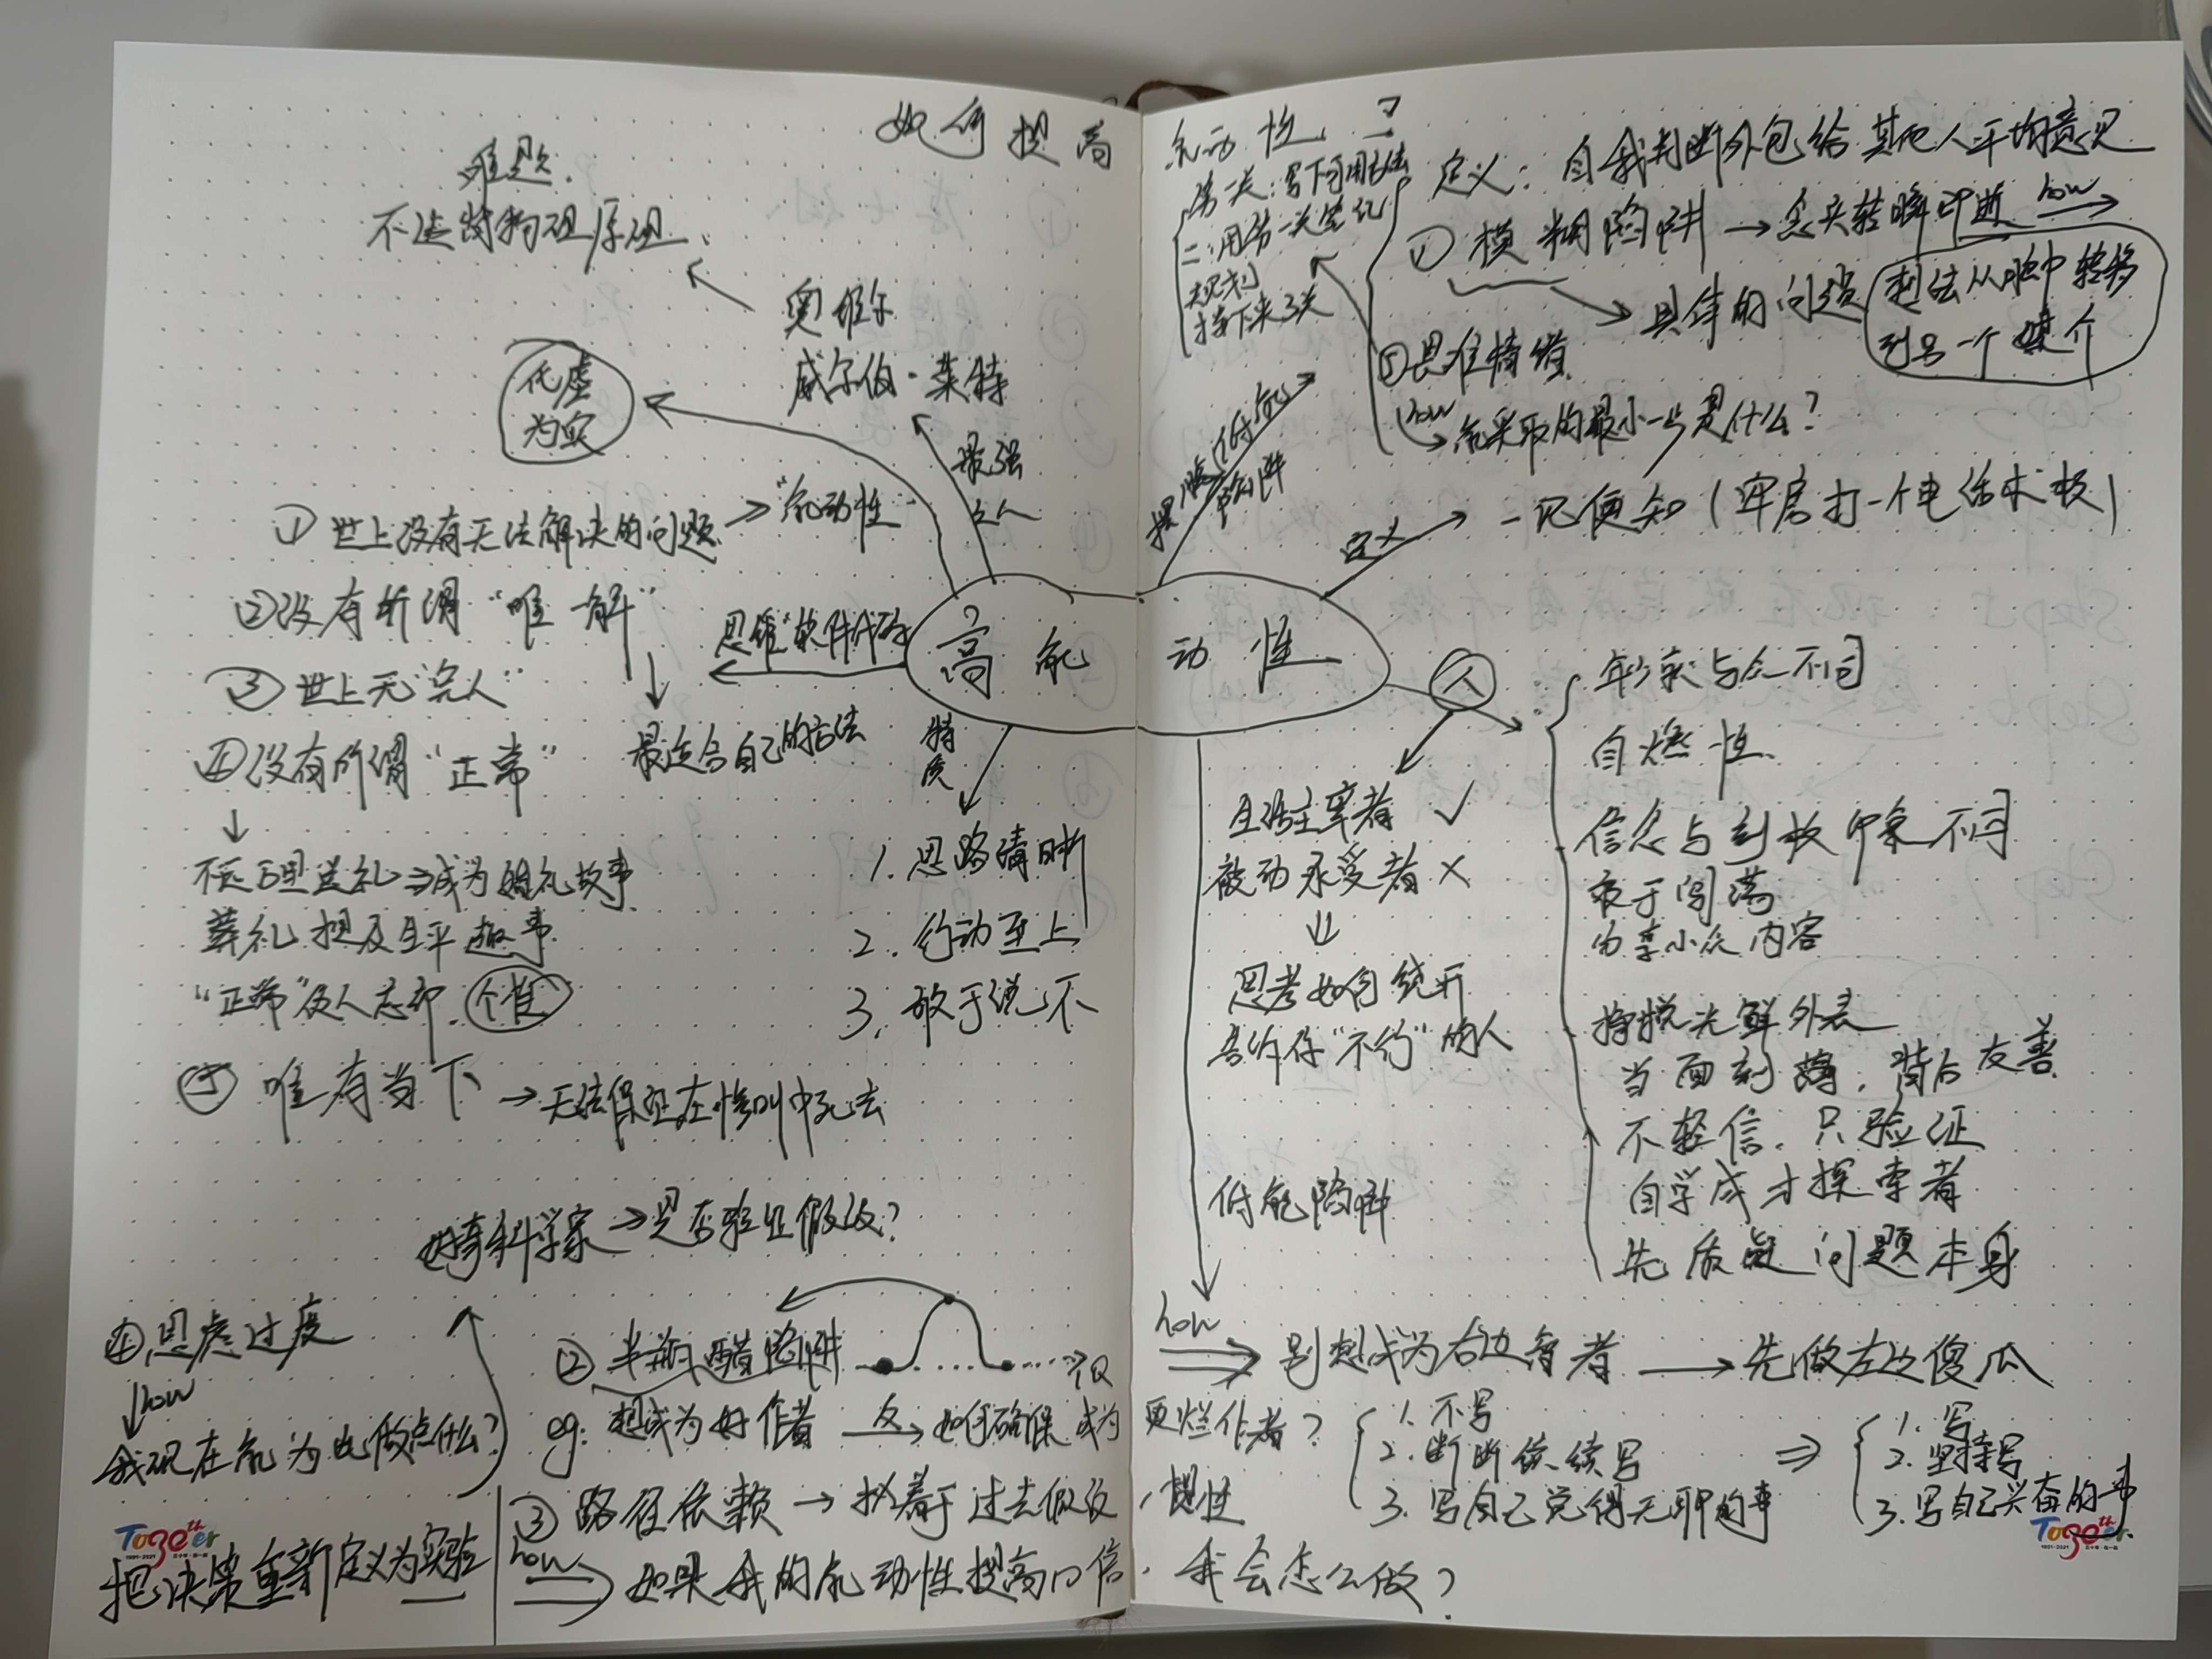 如何提高能动性？
难题
不违背物理原理
奥维尔
威尔伯·莱特
最强
之人
化虚
为实
① 世上没有无法解决的问题 → "能动性"
② 没有所谓"唯一解"
最适合自己的方法
③ 世上无"完人"
④ 没有所谓"正常"
成为婚礼故事
葬礼提及生平趣事
"正常"使人忘却 个性
⑤ 唯有当下 → 无法保证在惨叫中死去
思维"软件代码"
高能动性
特质
1. 思路清晰
2. 行动至上
3. 敢于说不
第一天：写下可用方法
二：用第一天笔记
去规划
接下来3天
定义：自我判断外包给其他人平均意见
① 模糊陷阱 → 念头转瞬即逝 how
具体的问题
想法从脑中转移
到另一个媒介
⑤ 思维情绪
how
能采取的最小一步是什么？
摆脱低能
陷阱
定义 → 一见便知（牢房打一个电话求救）
人
生活主宰者 ✓
被动承受者 ×
思考如何绕开
告诉你"不行"的人
年少就与众不同
自燃性
信念与刻板印象不同
敢于闯荡
分享小众内容
挣脱光鲜外表
当面刻薄，背后友善
不轻信，只验证
自学成才探索者
先质疑问题本身
低能陷阱
科学家 → 是否验证假设？
④ 思虑过度
how
我现在能为此做点什么？
把决策重新定义为实验
② 半瓶醋陷阱
IQ
how
别想成为右边智者 → 先做左边傻瓜
eg：想成为好作者 反→ 如何确保成为更烂作者？
1. 不写
2. 断断续续写
3. 写自己觉得无聊的事
1. 写
2. 坚持写
3. 写自己兴奋的事
③ 路径依赖 → 执着于过去假设，惯性
how
如果我的能动性提高10倍，我会怎么做？
Together
30th
1991-2021
Together
30th
1991-2021